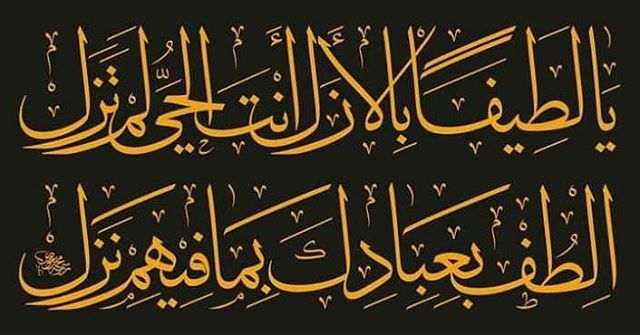 يَا لَطِيفًا بِالأَزَل أَنْتَ الحَيُّ لَم تَزَل
اِلْطُف بِعِبَادِكَ بِمَا فِيهِم نَزَل